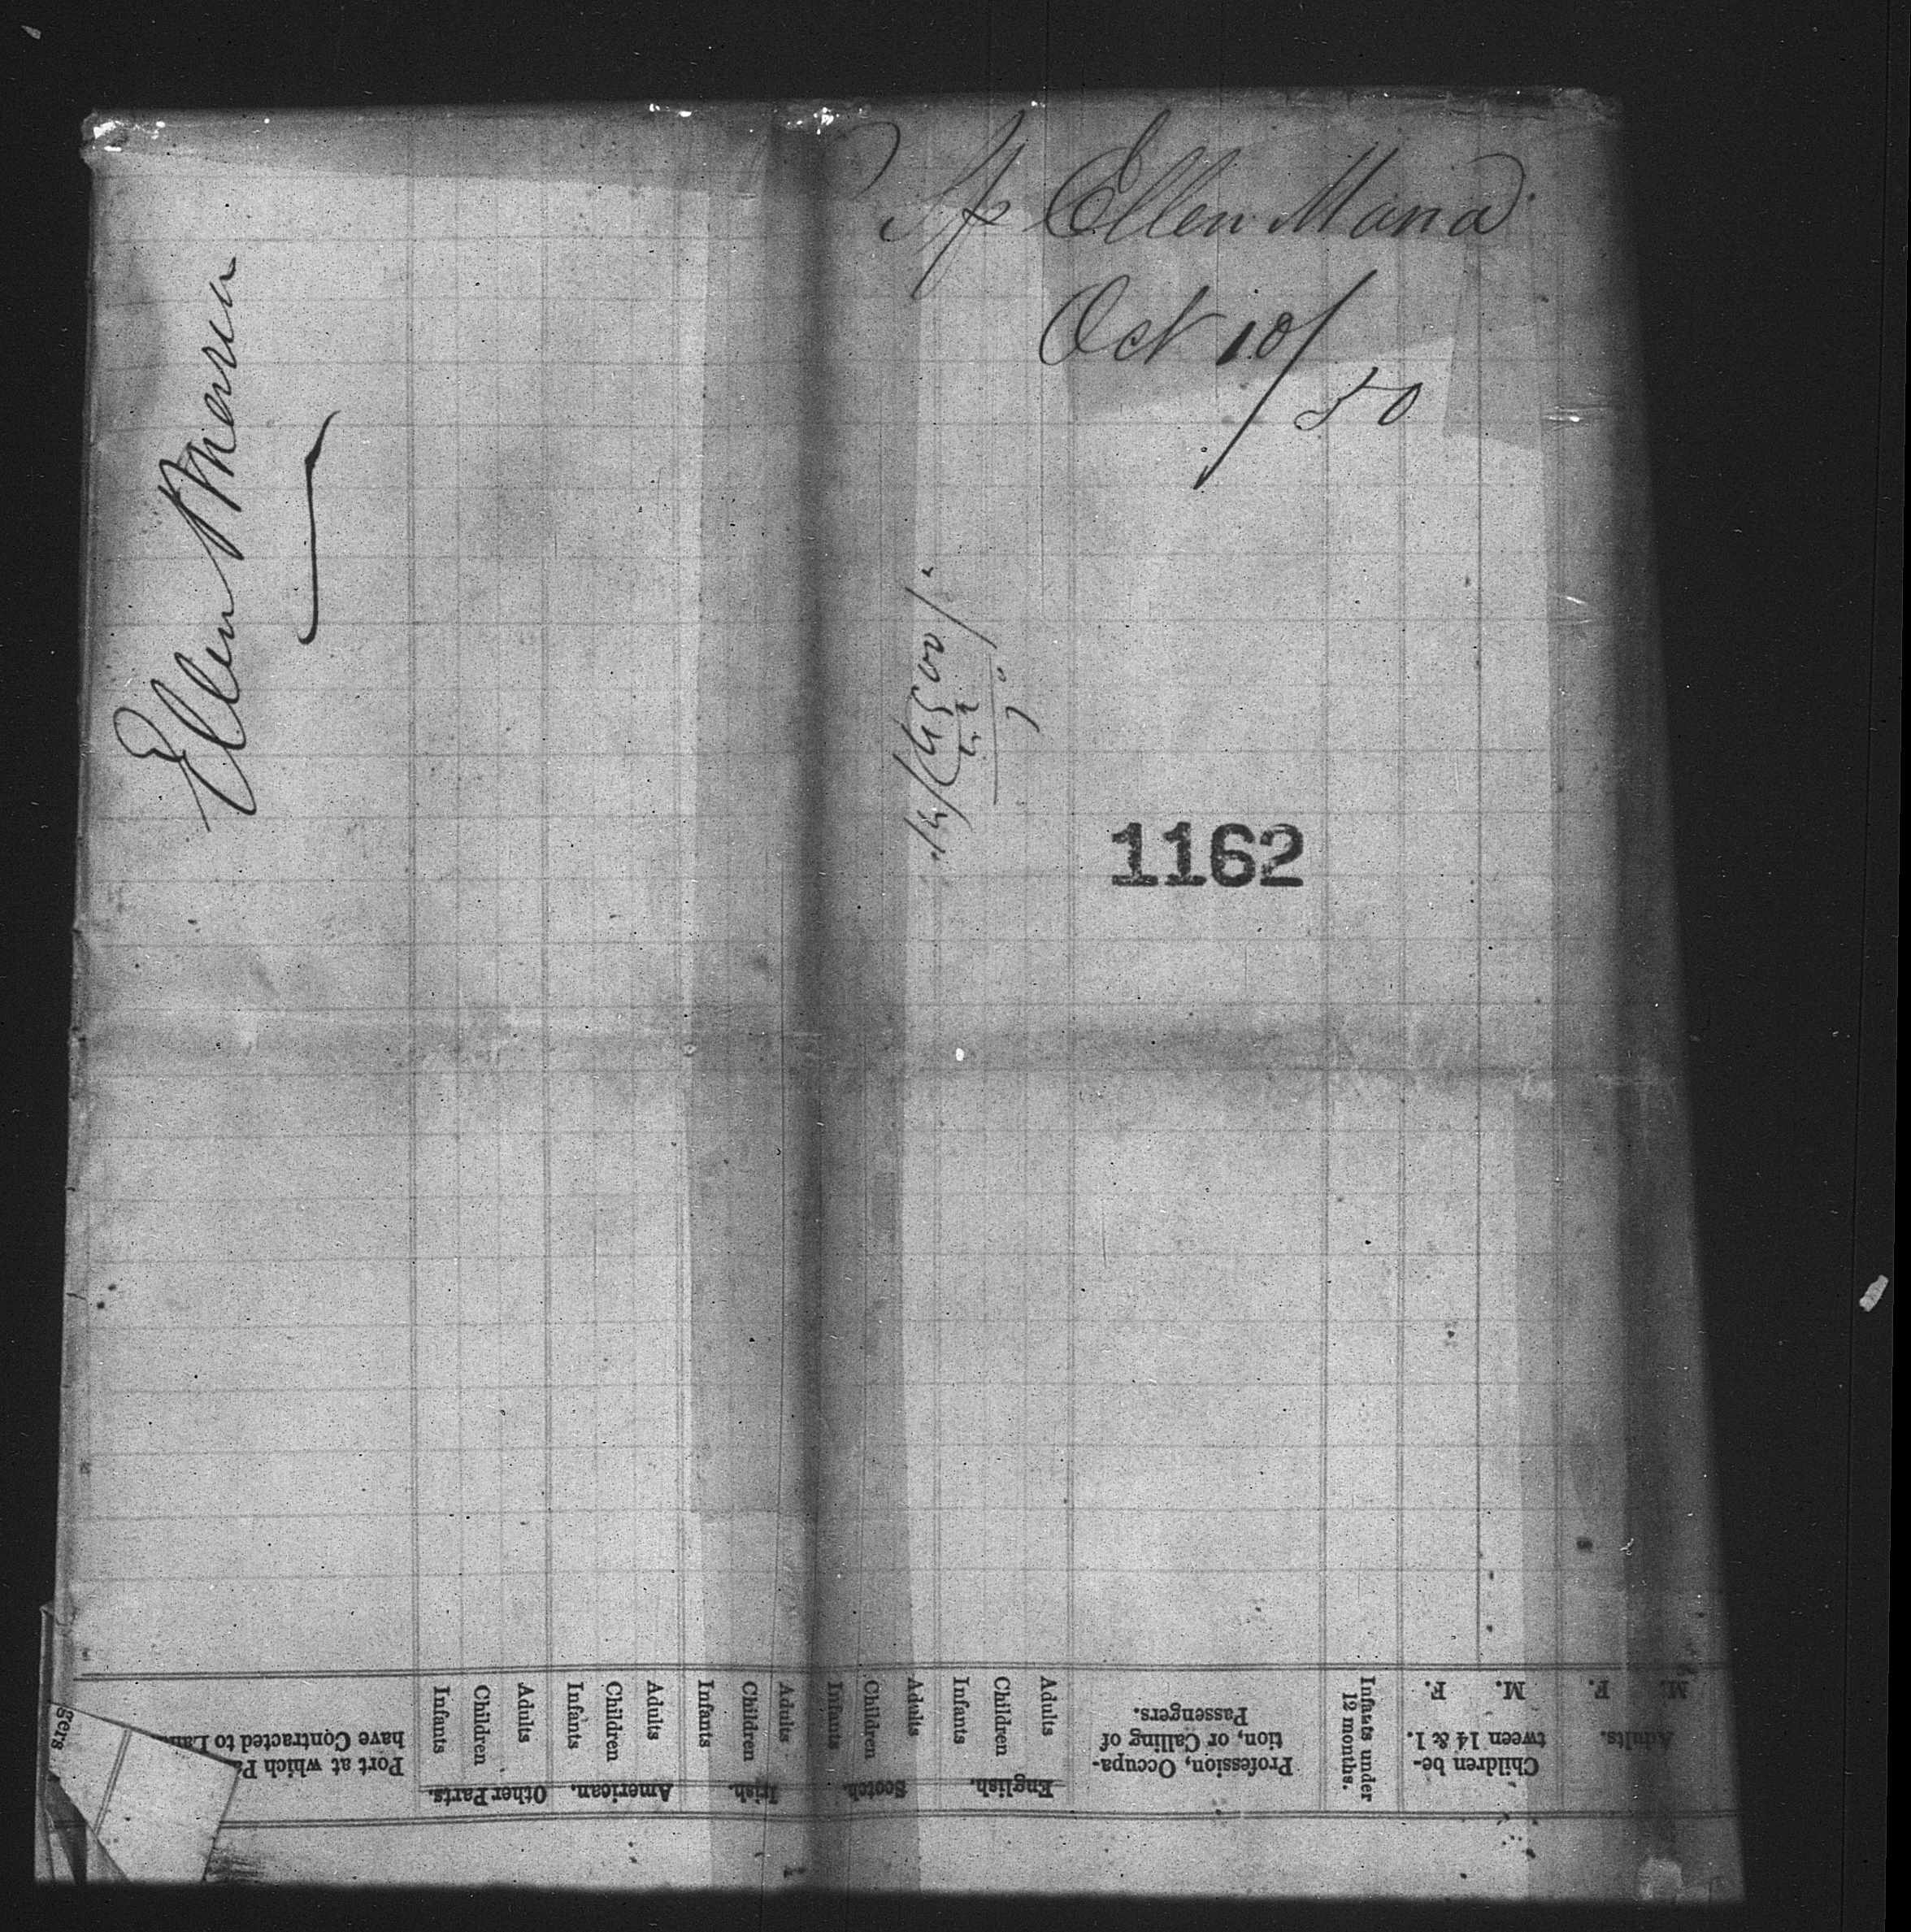 Ellen Maria
Oct 10/50
Ellen Maria
1162
Adults.
M. F.
Children be-
tween 14 & 1.
M. F.
Infants under
12 months.
Profession, Occupa-
tion, or Calling of
Passengers.
English.
Adults
Children
Infants
Scotch.
Adults
Children
Infants
Irish.
Adults
Children
Infants
American.
Adults
Children
Infants
Other Parts.
Adults
Children
Infants
Port at which
have Contracted to
gers